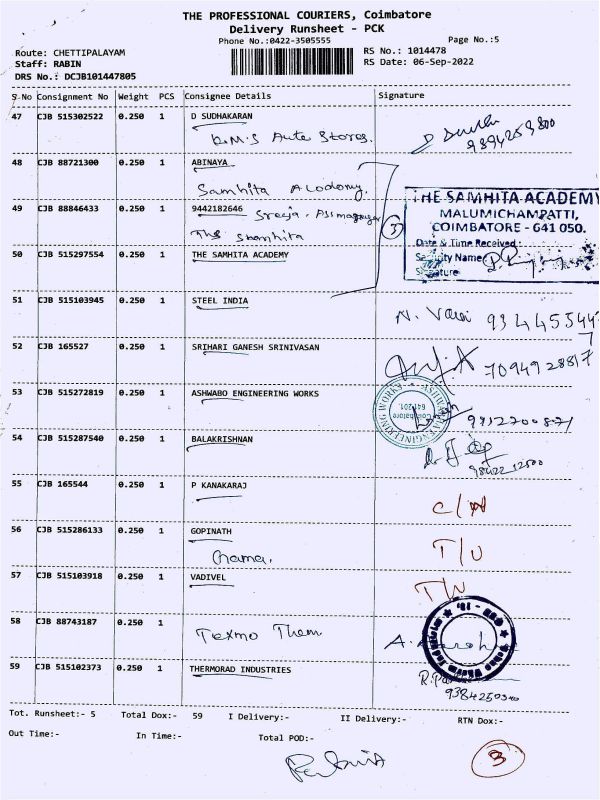 THE PROFESSIONAL COURIERS, Coimbatore
Delivery Runsheet - PCK
Phone No.:0422-3505555
Page No.:5
Route: CHETTIPALAYAM
RS No.: 1014478
Staff: RABIN
RS Date: 06-Sep-2022
DRS No.: DCJB101447805
S.No Consignment No Weight PCS Consignee Details Signature
47 CJB 515302522 0.250 1 D SUDHAKARAN
D.M.S Auto Stores.
48 CJB 88721300 0.250 1 ABINAYA
Samhita
49 CJB 88846433 0.250 1 9442182646
The
3
THE SAMHITA ACADEMY
MALUMICHAMPATTI,
COIMBATORE - 641 050.
Date & Time Received:
Security Name
Signature
50 CJB 515297554 0.250 1 THE SAMHITA ACADEMY
51 CJB 515103945 0.250 1 STEEL INDIA
52 CJB 165527 0.250 1 SRIHARI GANESH SRINIVASAN
7094928817
53 CJB 515272819 0.250 1 ASHWABO ENGINEERING WORKS
ENGINEERING WORKS
Coimbatore
54 CJB 515287540 0.250 1 BALAKRISHNAN
55 CJB 165544 0.250 1 P KANAKARAJ
56 CJB 515286133 0.250 1 GOPINATH
T/U
57 CJB 515103918 0.250 1 VADIVEL
58 CJB 88743187 0.250 1
Texmo
59 CJB 515102373 0.250 1 THERMORAD INDUSTRIES
Tot. Runsheet:- 5 Total Dox:- 59 I Delivery:- II Delivery:- RTN Dox:-
Out Time:- In Time:- Total POD:-
3